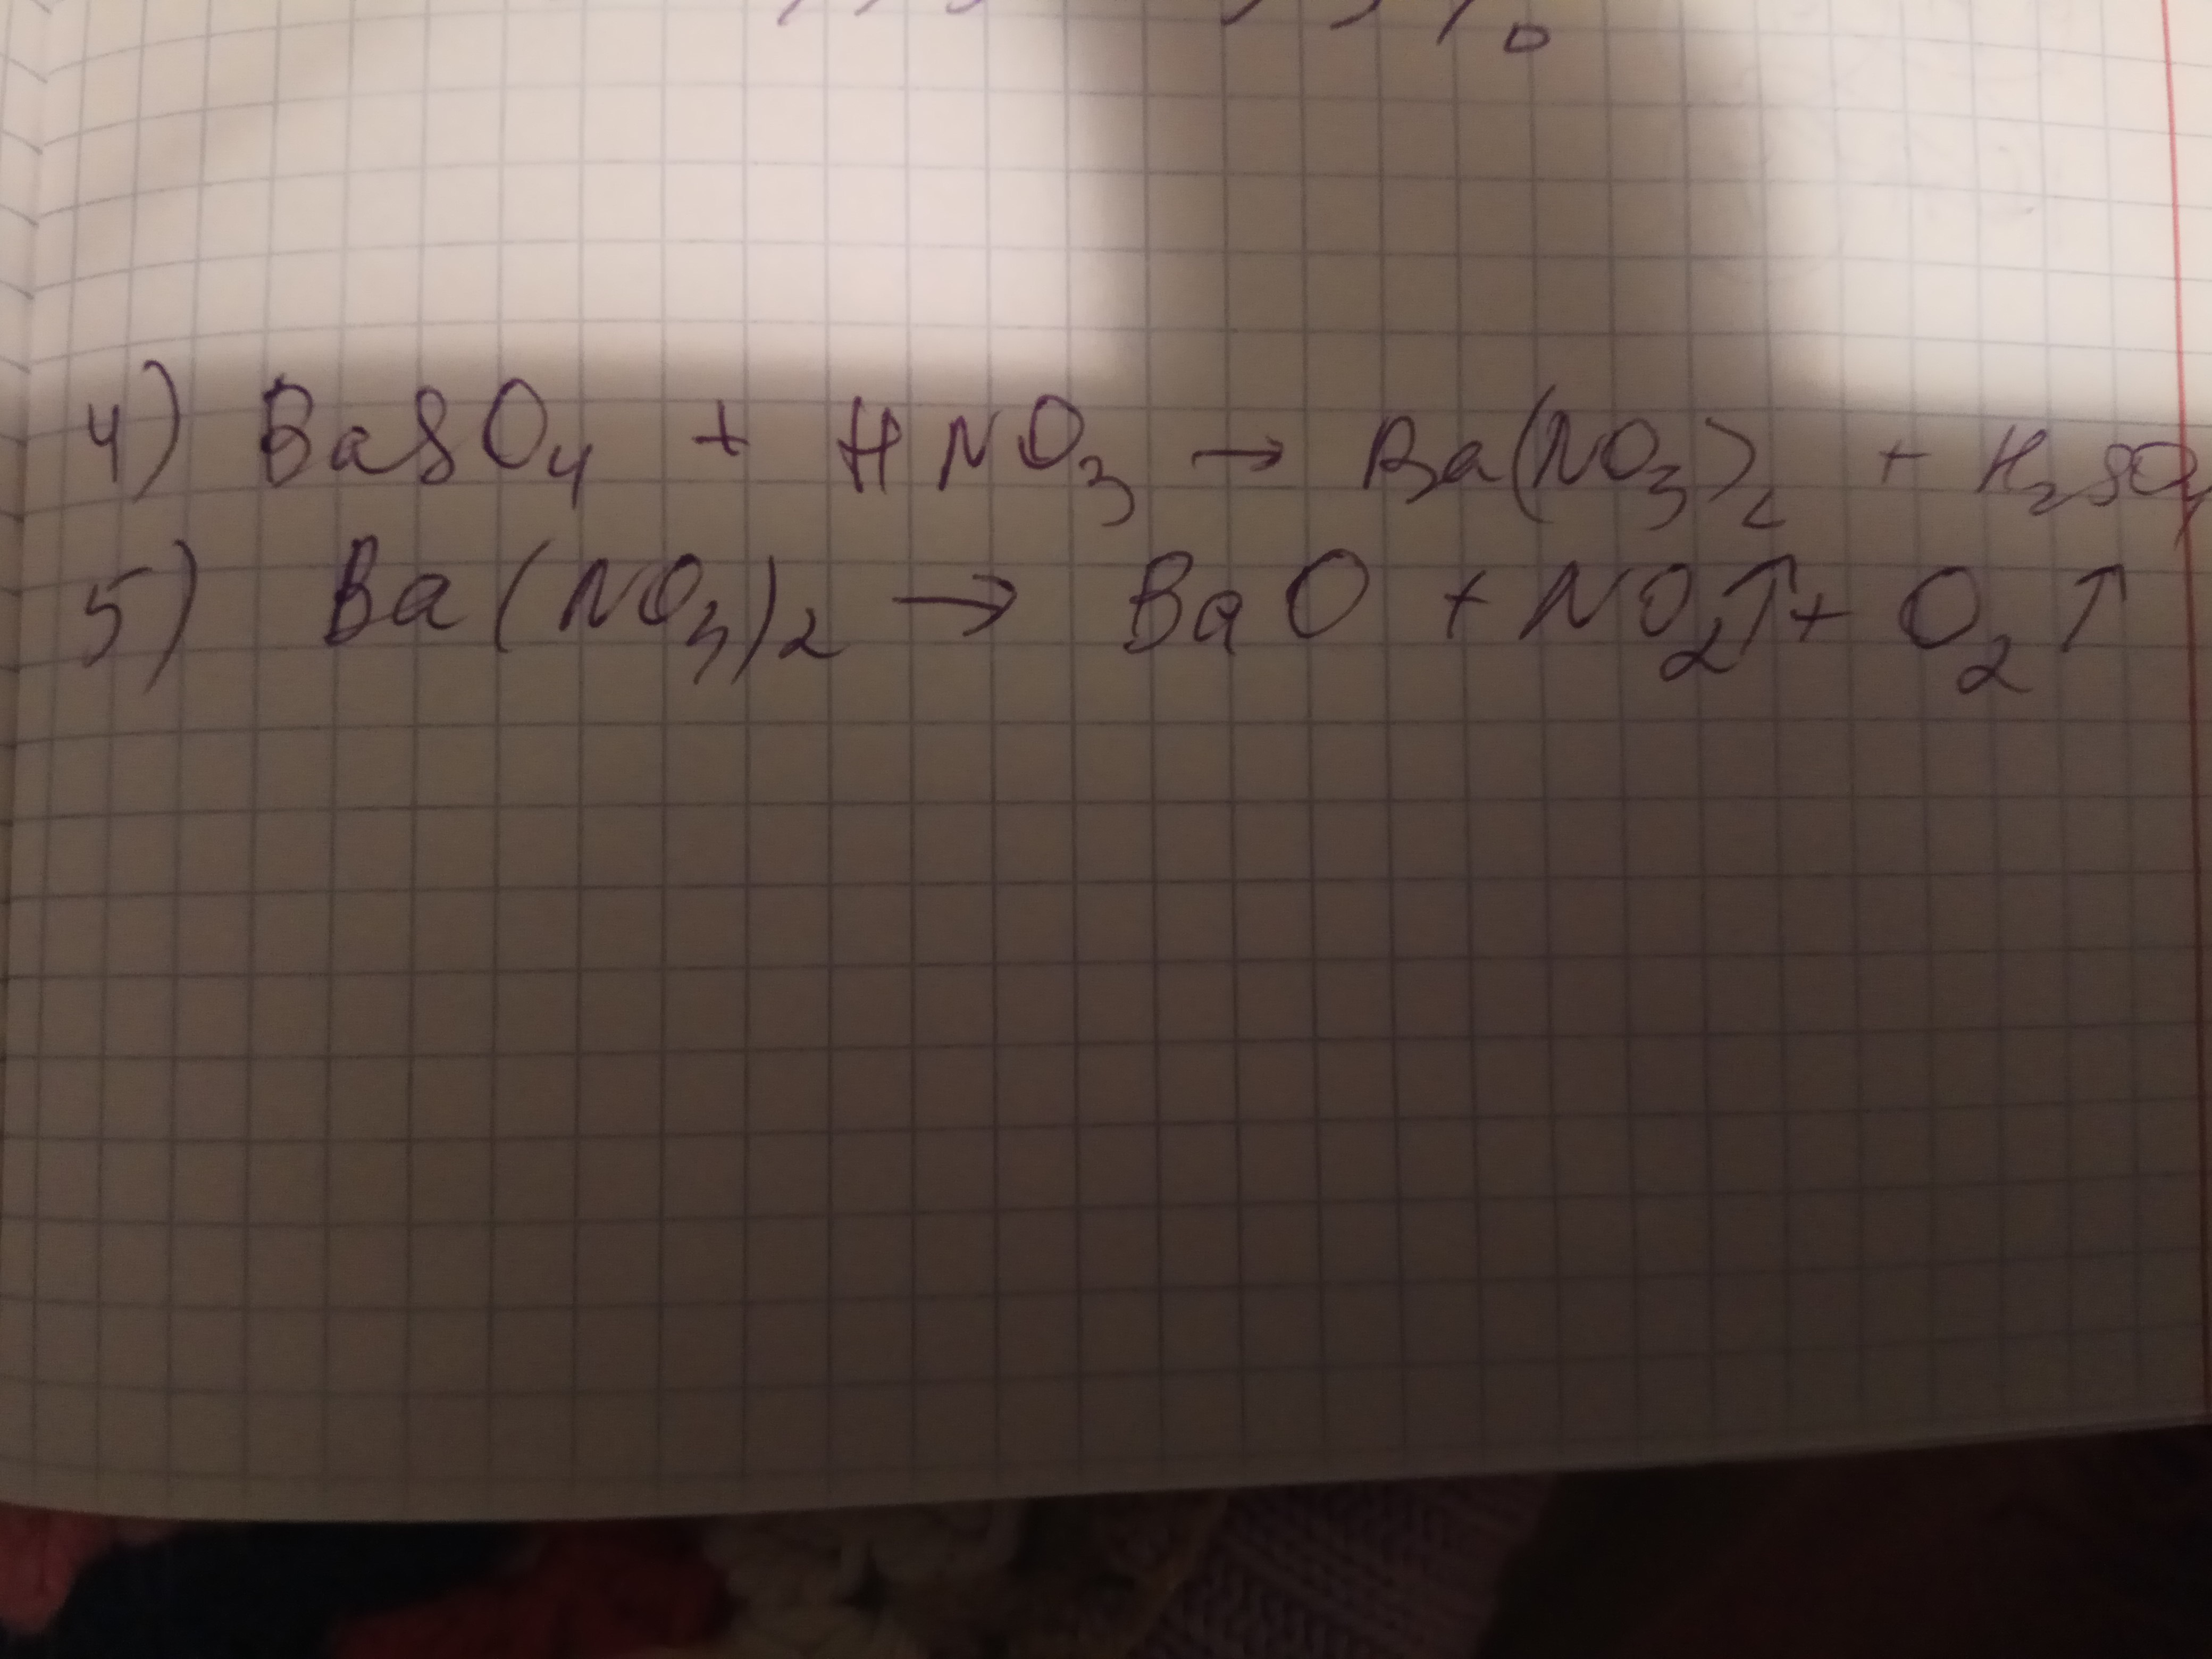 4) BaSO₄ + HNO₃ → Ba(NO₃)₂ + H₂SO₄
5) Ba(NO₃)₂ → BaO + NO₂↑ + O₂↑